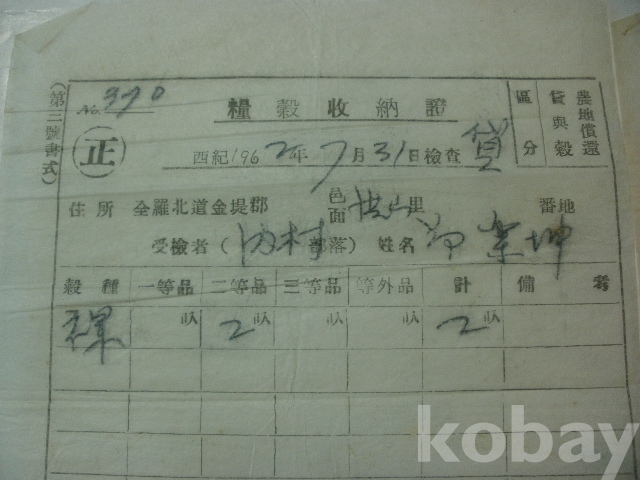 (第三號書式)
No. 370
糧穀收納證
區分
農地償還
貸與穀
正
西紀1962年7月31日檢査
貸
住所 全羅北道金堤郡 邑面 里 番地
受檢者(內村部落)姓名 業坤
穀種 一等品 二等品 三等品 等外品 計 備考
裸 叺 2叺 叺 叺 2叺
kobay